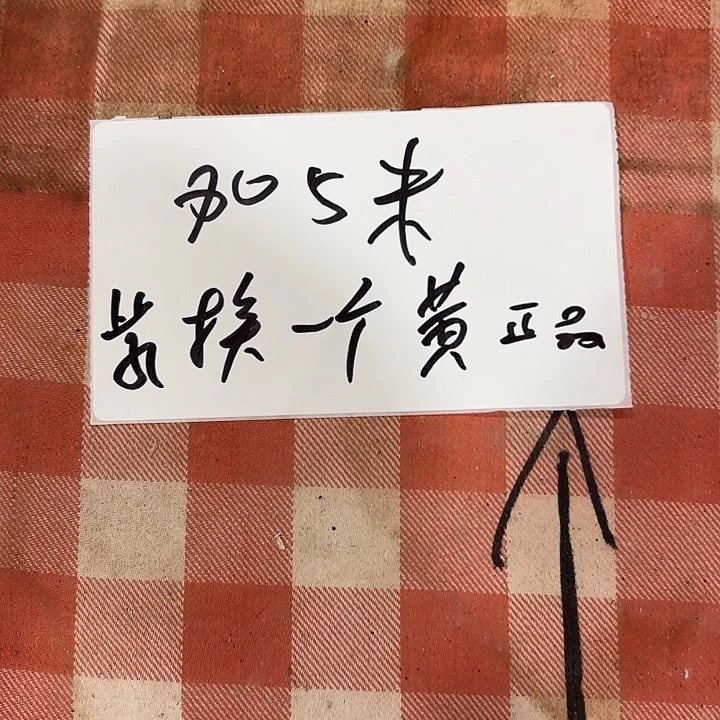 加5米
紫换一个黄正品